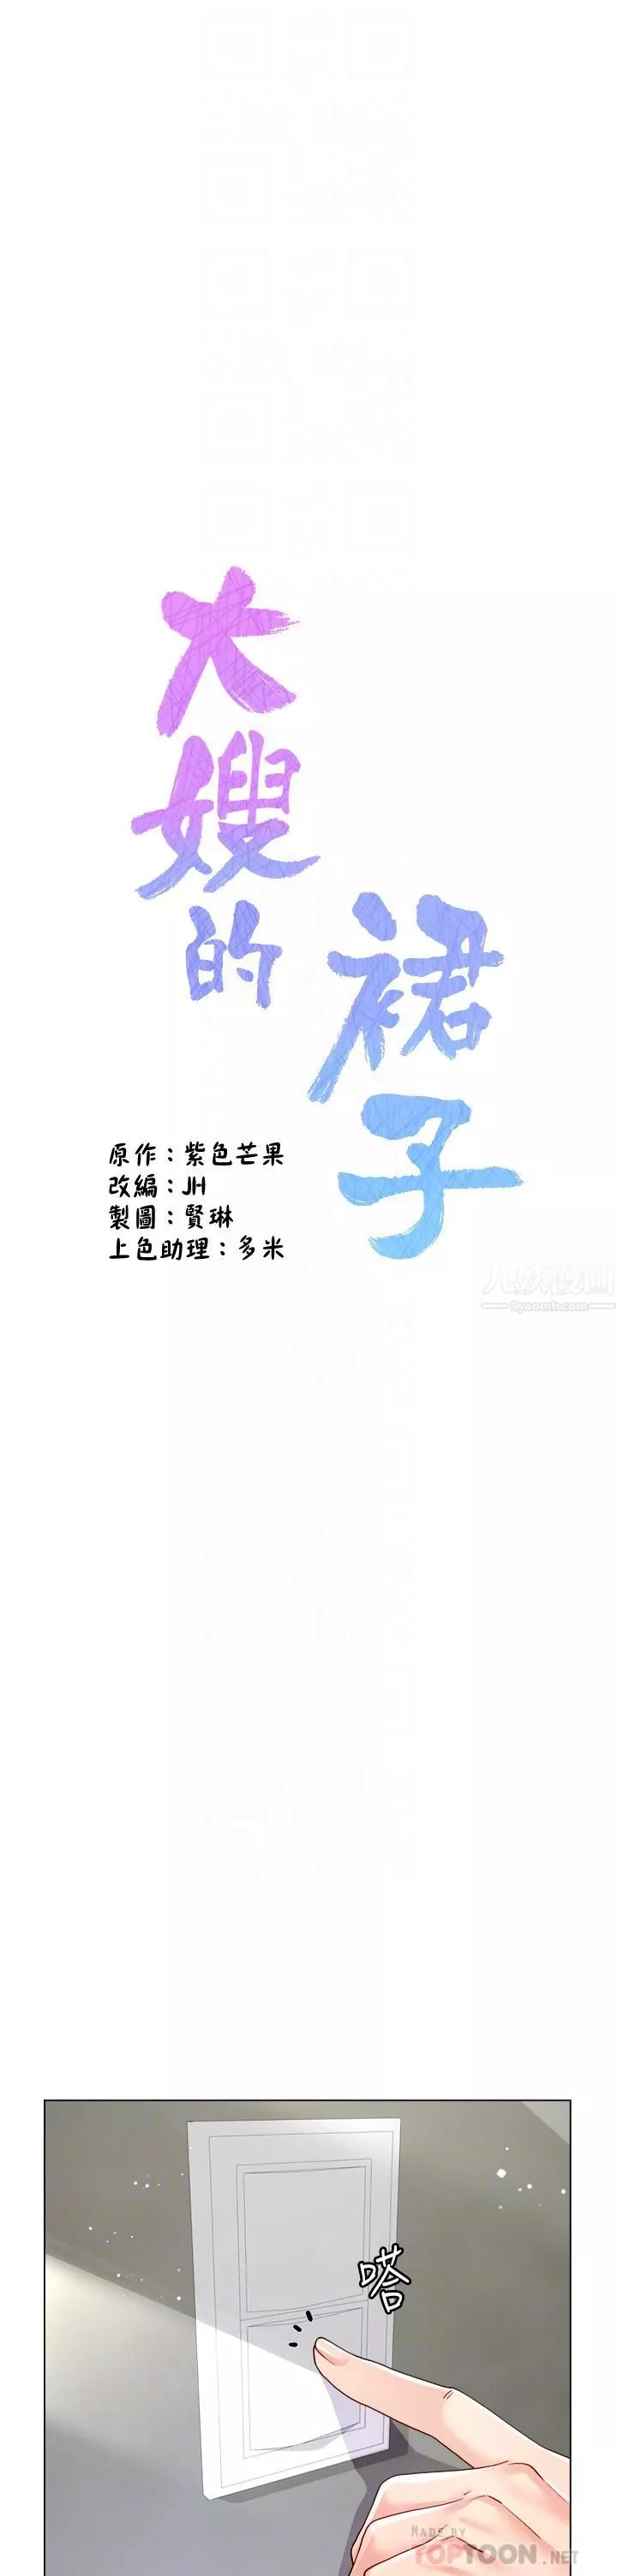 大嫂的
裙子
原作：紫色芒果
改編：JH
製圖：賢琳
上色助理：多米
九妖漫画
9yaomh.com
嗒
MADE BY
TOPTOON.NET